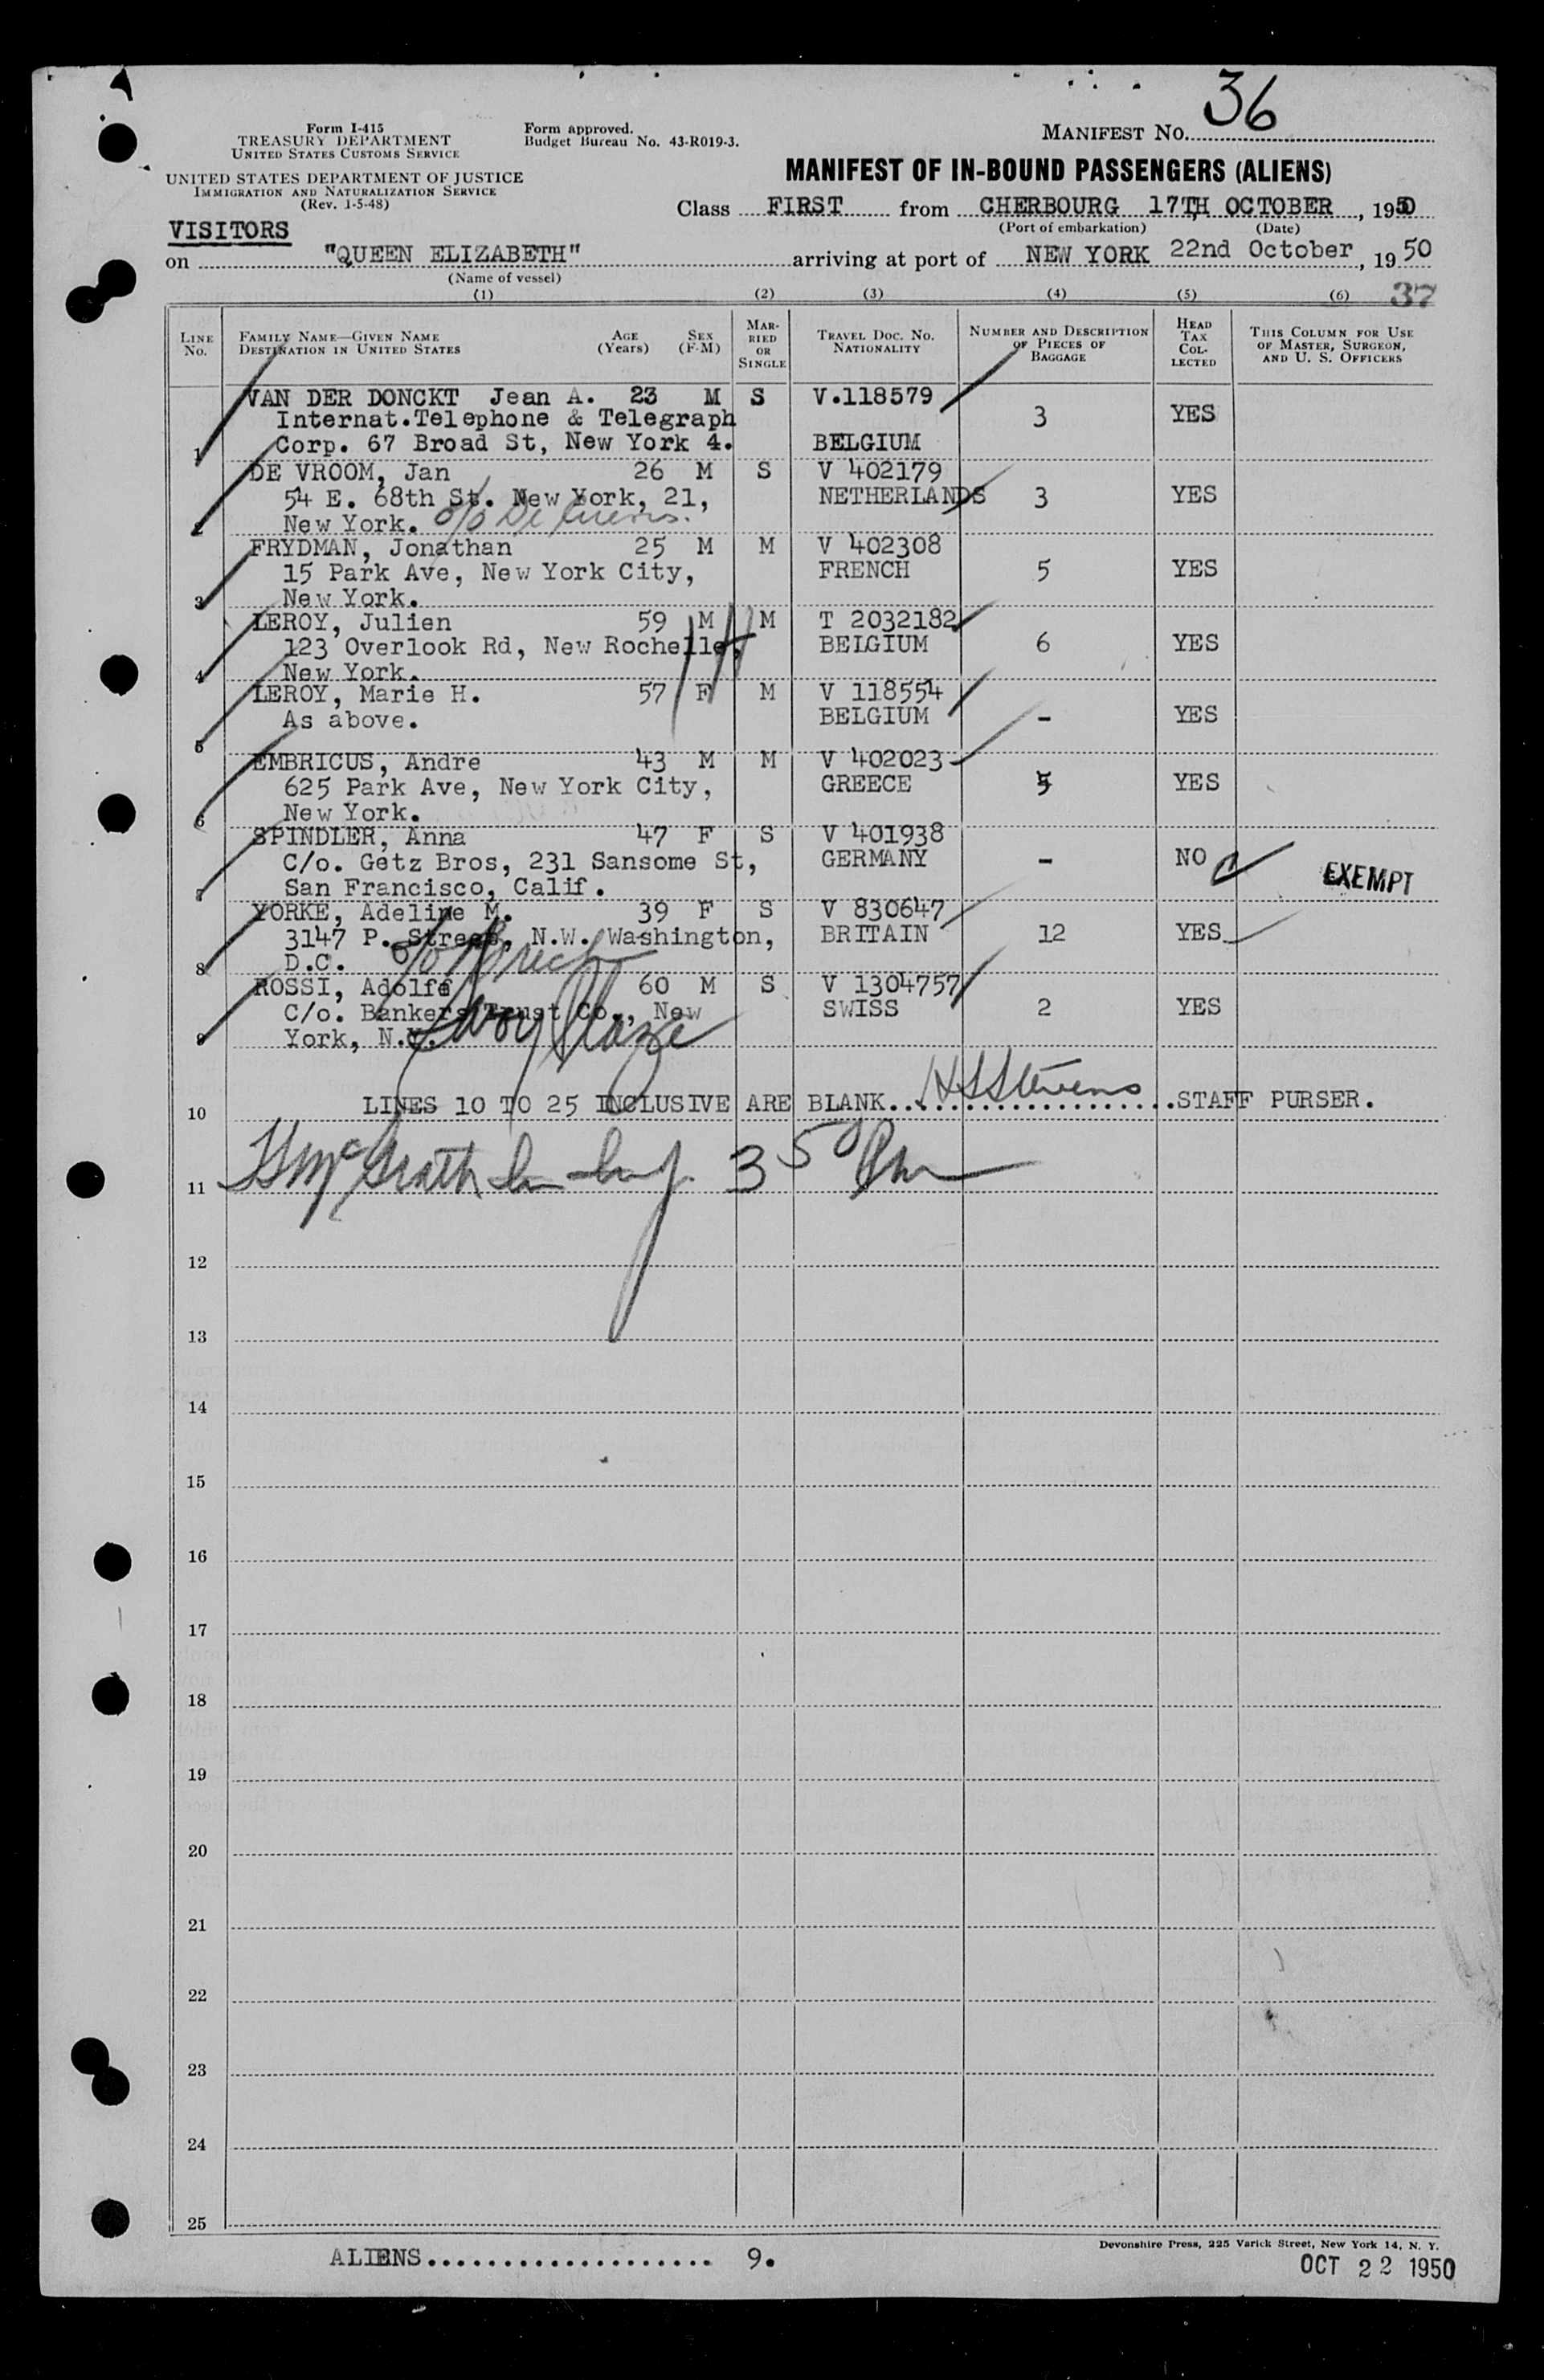 36
Form I-415
TREASURY DEPARTMENT
UNITED STATES CUSTOMS SERVICE
Form approved.
Budget Bureau No. 43-R019-3.
MANIFEST NO.
UNITED STATES DEPARTMENT OF JUSTICE
IMMIGRATION AND NATURALIZATION SERVICE
(Rev. 1-5-48)
MANIFEST OF IN-BOUND PASSENGERS (ALIENS)
Class FIRST from CHERBOURG 17TH OCTOBER, 1950
(Port of embarkation) (Date)
VISITORS
on "QUEEN ELIZABETH" arriving at port of NEW YORK 22nd October, 1950
(Name of vessel)
(1) (2) (3) (4) (5) (6) 37
LINE No. FAMILY NAME—GIVEN NAME DESTINATION IN UNITED STATES AGE (Years) SEX (F-M) MARRIED OR SINGLE TRAVEL DOC. NO. NATIONALITY NUMBER AND DESCRIPTION OF PIECES OF BAGGAGE HEAD TAX COLLECTED THIS COLUMN FOR USE OF MASTER, SURGEON, AND U. S. OFFICERS
VAN DER DONCKT Jean A. 23 M S V.118579
Internat.Telephone & Telegraph 3 YES
1 Corp. 67 Broad St, New York 4. BELGIUM
DE VROOM, Jan 26 M S V 402179
54 E. 68th St. New York, 21, NETHERLANDS 3 YES
2 New York. c/o De
FRYDMAN, Jonathan 25 M M V 402308
15 Park Ave, New York City, FRENCH 5 YES
3 New York.
LEROY, Julien 59 M M T 2032182
123 Overlook Rd, New Rochelle, BELGIUM 6 YES
4 New York.
LEROY, Marie H. 57 F M V 118554
As above. BELGIUM - YES
5
EMBRICUS, Andre 43 M M V 402023
625 Park Ave, New York City, GREECE 5 YES
6 New York.
SPINDLER, Anna 47 F S V 401938
C/o. Getz Bros, 231 Sansome St, GERMANY - NO EXEMPT
7 San Francisco, Calif.
YORKE, Adeline M. 39 F S V 830647
3147 P. Street, N.W. Washington, BRITAIN 12 YES
8 D.C. c/o
ROSSI, Adolfo 60 M S V 1304757
C/o. Bankers Trust Co., New SWISS 2 YES
9 York, N.Y. Savoy Plaza
10 LINES 10 TO 25 INCLUSIVE ARE BLANK. H S Stevens STAFF PURSER.
11 McGrath 35
12
13
14
15
16
17
18
19
20
21
22
23
24
25
ALIENS................... 9.
Devonshire Press, 225 Varick Street, New York 14, N. Y.
OCT 22 1950